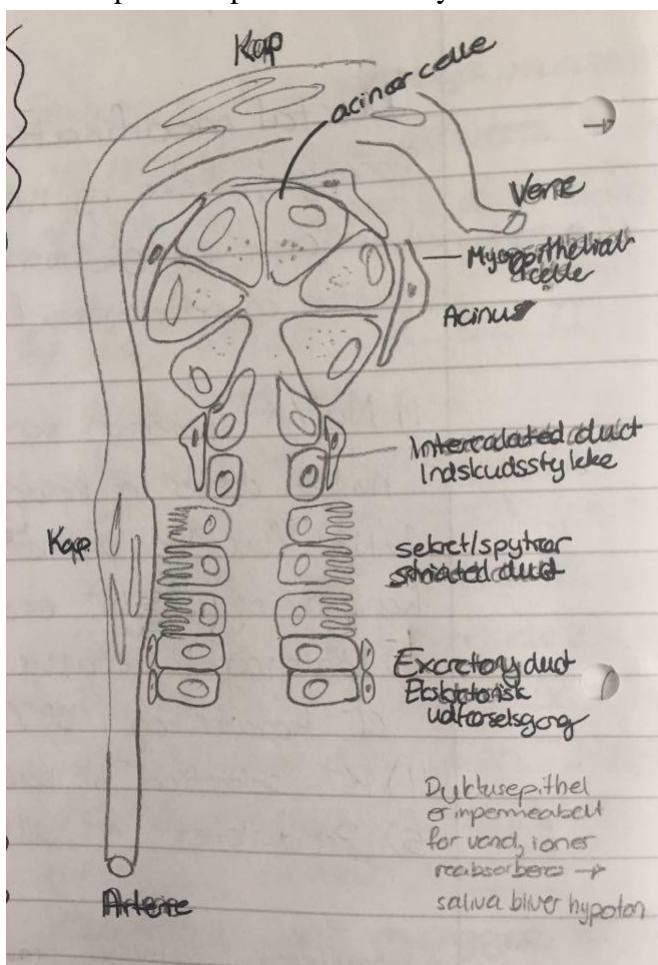 Kap
acinær celle
Vene
Myoepithelial
celle
Acinus
Intercalated duct
Indskudsstykke
Kap
sekret/spytrør
striated duct
Excretory duct
Ekskretorisk
udførselsgang
Duktusepithel
er impermeabelt
for vand, ioner
reabsorberes →
saliva bliver hypoton
Arterie